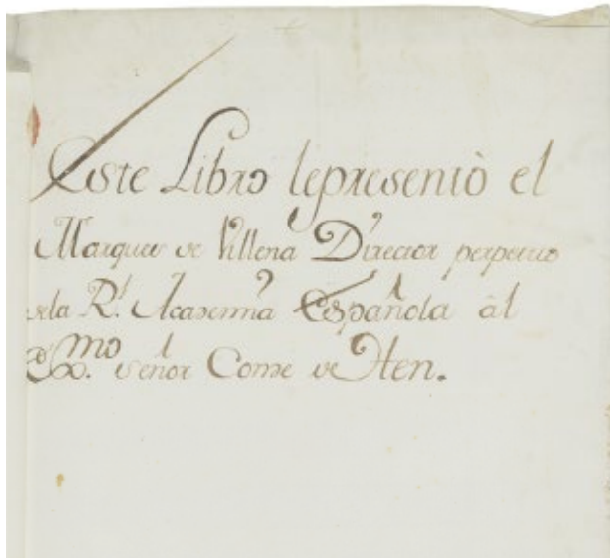 Este Libro lepresentò el
Marques de Villena Director perpetuo
dela Rl. Academia Española âl
Exmo. Señor Conde de Aten.